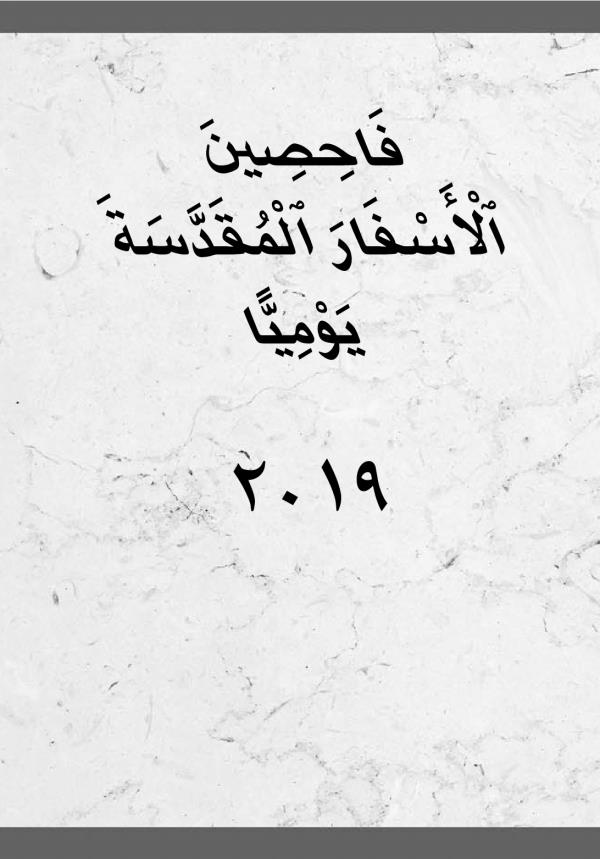 فَاحِصِينَ
ٱلْأَسْفَارَ ٱلْمُقَدَّسَةَ
يَوْمِيًّا
٢٠١٩